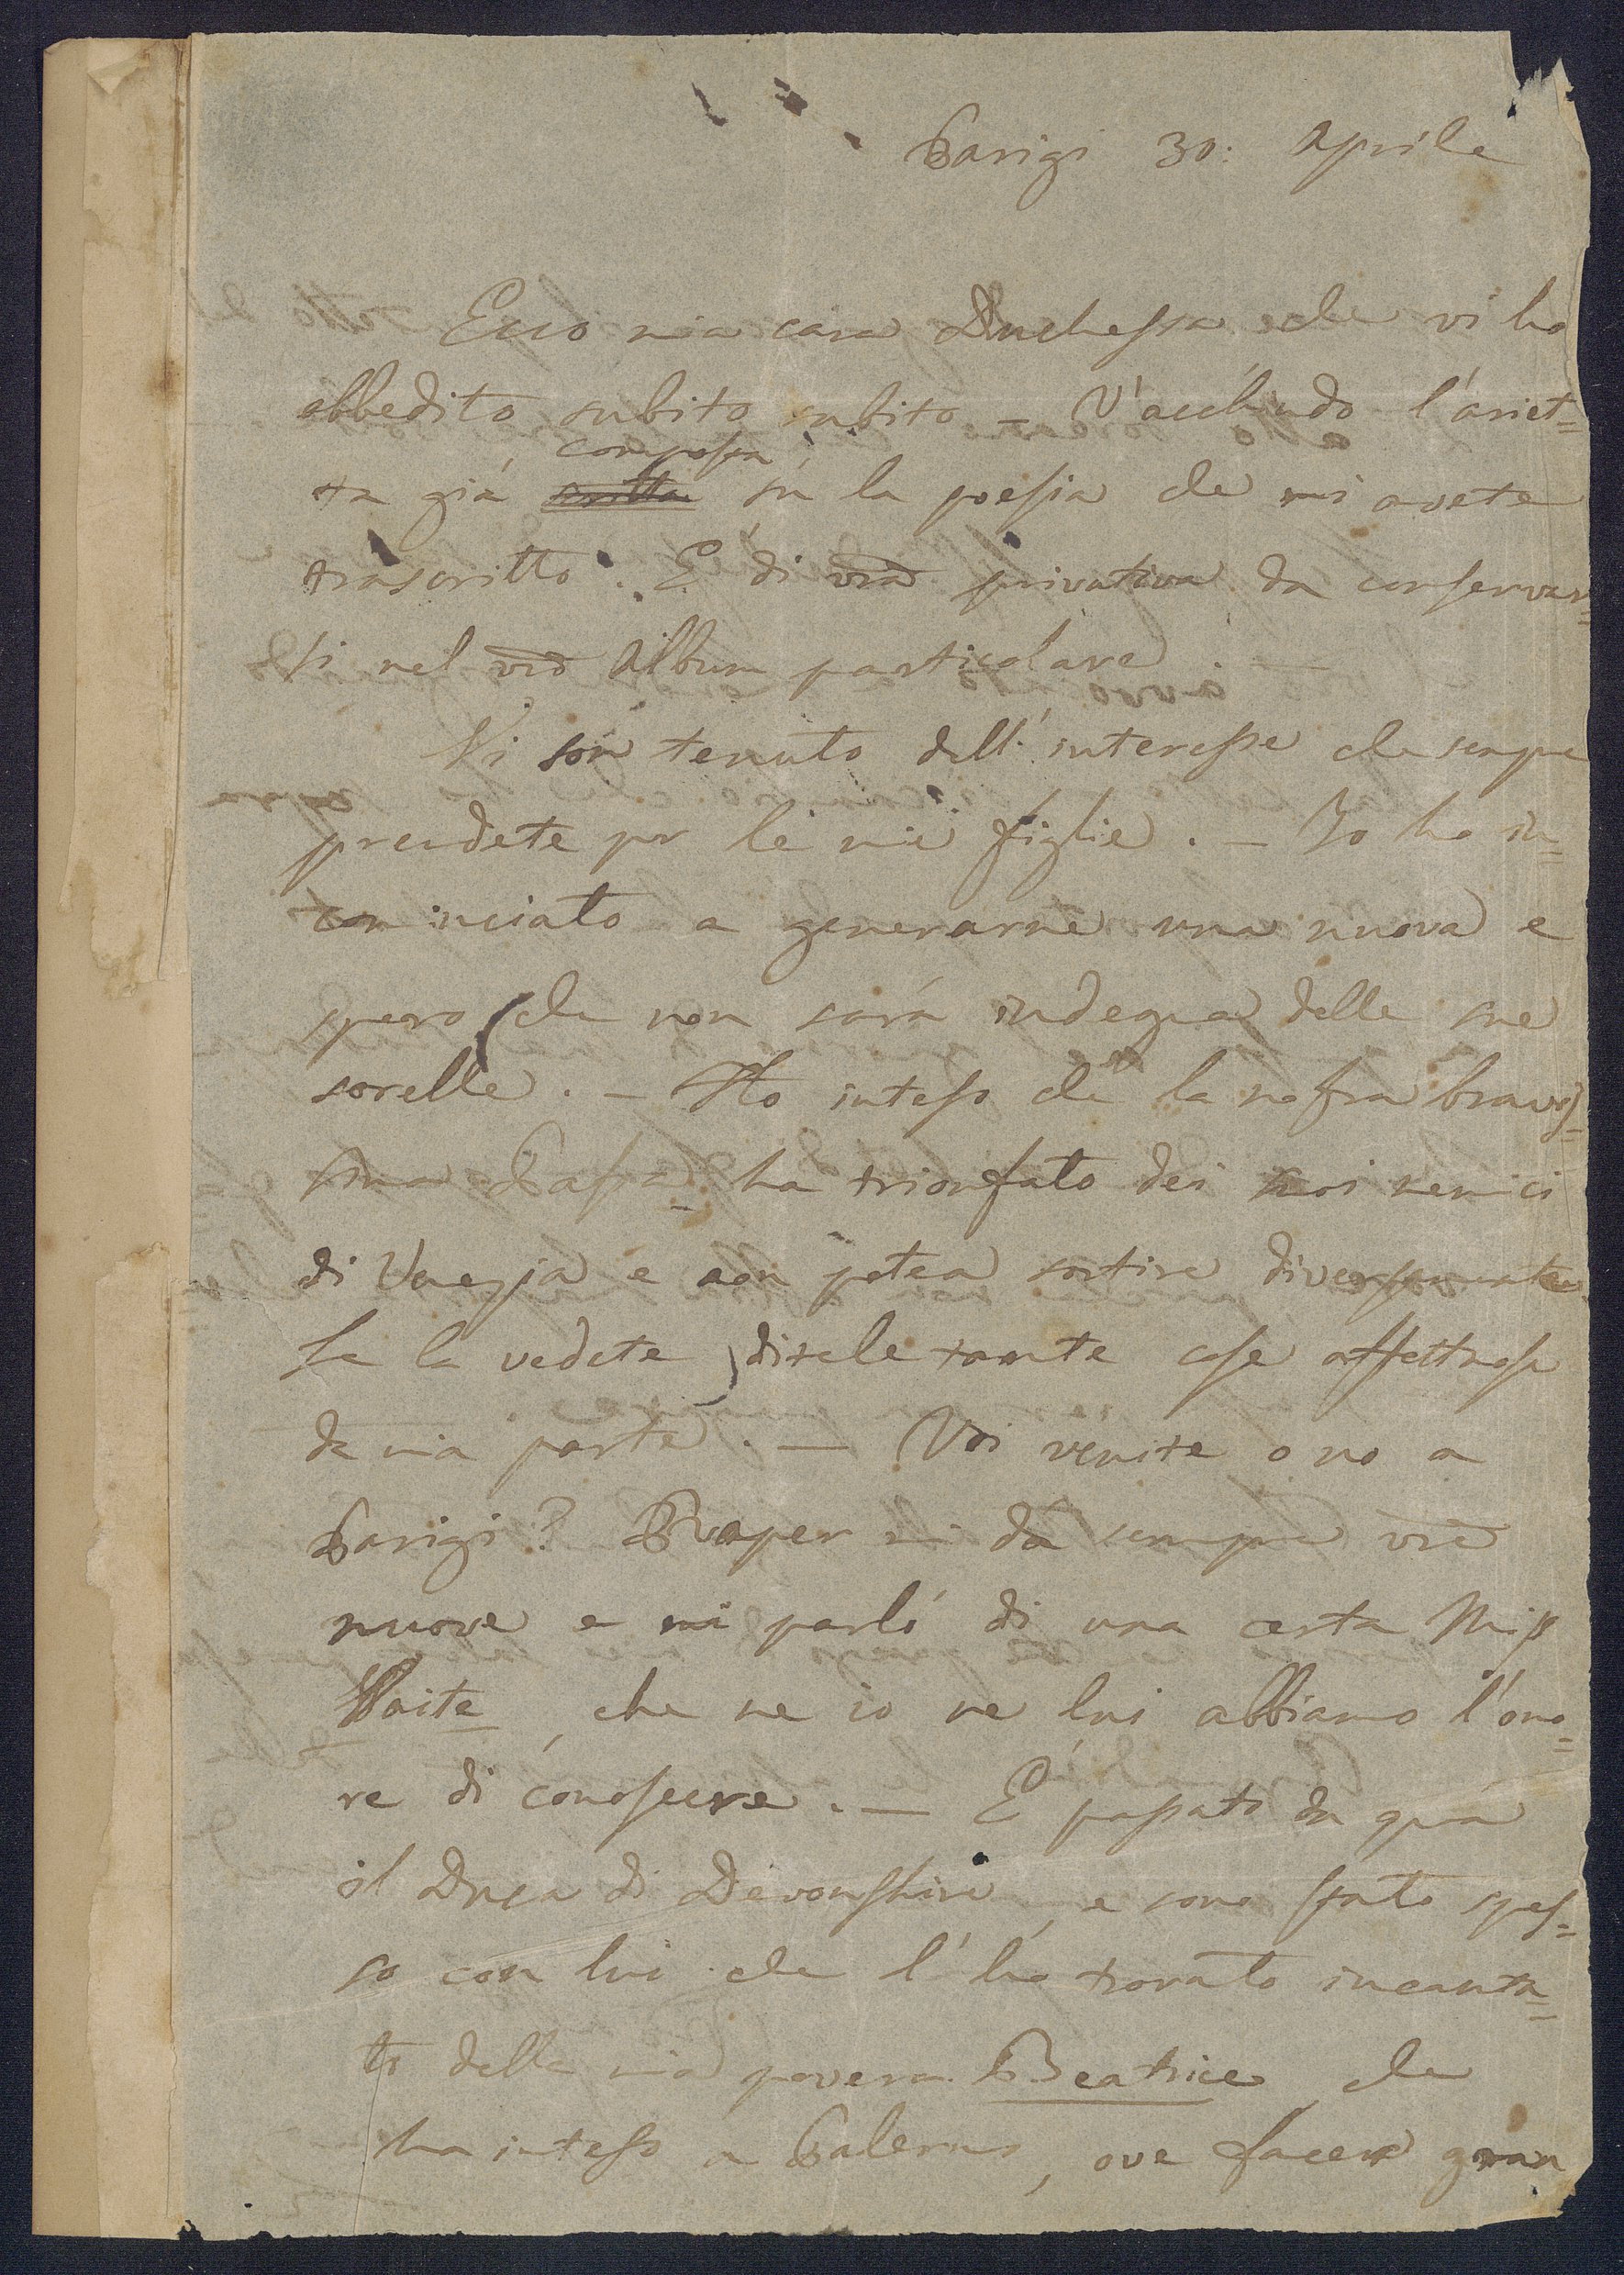 Parigi 30: Aprile
Ecco mia cara Duchessa che vi ho
obbedito subito subito – V'acchiudo l'ariet=
composta
ta già scritta su la poesia che mi avete
trascritto. É di vrā privativa da conservar=
si nel vrō Album particolare. —
Vi son tenuto dell'interesse che sempre
prendete per le mie figlie. – Io ho in=
cominciato a generarne una nuova e
spero che non sarà indegna delle sue
sorelle. – Ho inteso che la nostra bravis=
sima Pasta ha trionfato dei suoi nemici
di Venezia e non potea sortire diversamente
Se la vedete, ditele tante cose affettuose
da mia parte. — Voi venite o no a
Parigi? Praper mi dà sempre vrē
nuove e mi parlò di una certa Miss
Waite, che ne io ne lui abbiamo l'ono=
re di conoscere. — É passato da quà
il Duca di Devonshire, e sono stato spes=
so con lui che l'ho trovato incanta=
to della mia povera Beatrice che
ha inteso a Palermo, ove facea gran